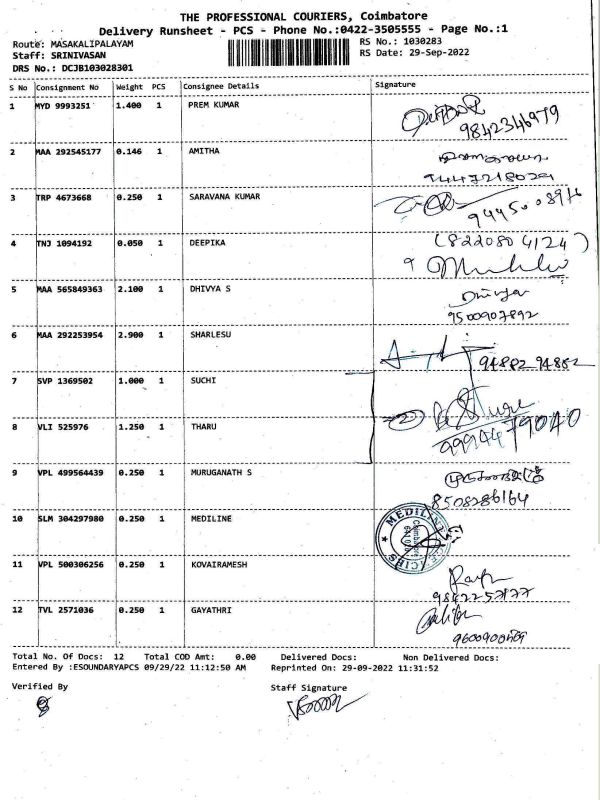 THE PROFESSIONAL COURIERS, Coimbatore
Delivery Runsheet - PCS - Phone No.:0422-3505555 - Page No.:1
Route: MASAKALIPALAYAM RS No.: 1030283
Staff: SRINIVASAN RS Date: 29-Sep-2022
DRS No.: DCJB103028301
S No Consignment No Weight PCS Consignee Details Signature
1 MYD 9993251 1.400 1 PREM KUMAR
9842346979
2 MAA 292545177 0.146 1 AMITHA
9447218029
3 TRP 4673668 0.250 1 SARAVANA KUMAR
4 TNJ 1094192 0.050 1 DEEPIKA (8220804124)
5 MAA 565849363 2.100 1 DHIVYA S Dhivya
9500907892
6 MAA 292253954 2.900 1 SHARLESU
94882 94882
7 SVP 1369502 1.000 1 SUCHI
8 VLI 525976 1.250 1 THARU
9994479040
9 VPL 499564439 0.250 1 MURUGANATH S
8508286164
10 SLM 304297980 0.250 1 MEDILINE
11 VPL 500306256 0.250 1 KOVAIRAMESH
9842257177
12 TVL 2571036 0.250 1 GAYATHRI
9600900569
Total No. Of Docs: 12 Total COD Amt: 0.00 Delivered Docs: Non Delivered Docs:
Entered By :ESOUNDARYAPCS 09/29/22 11:12:50 AM Reprinted On: 29-09-2022 11:31:52
Verified By Staff Signature